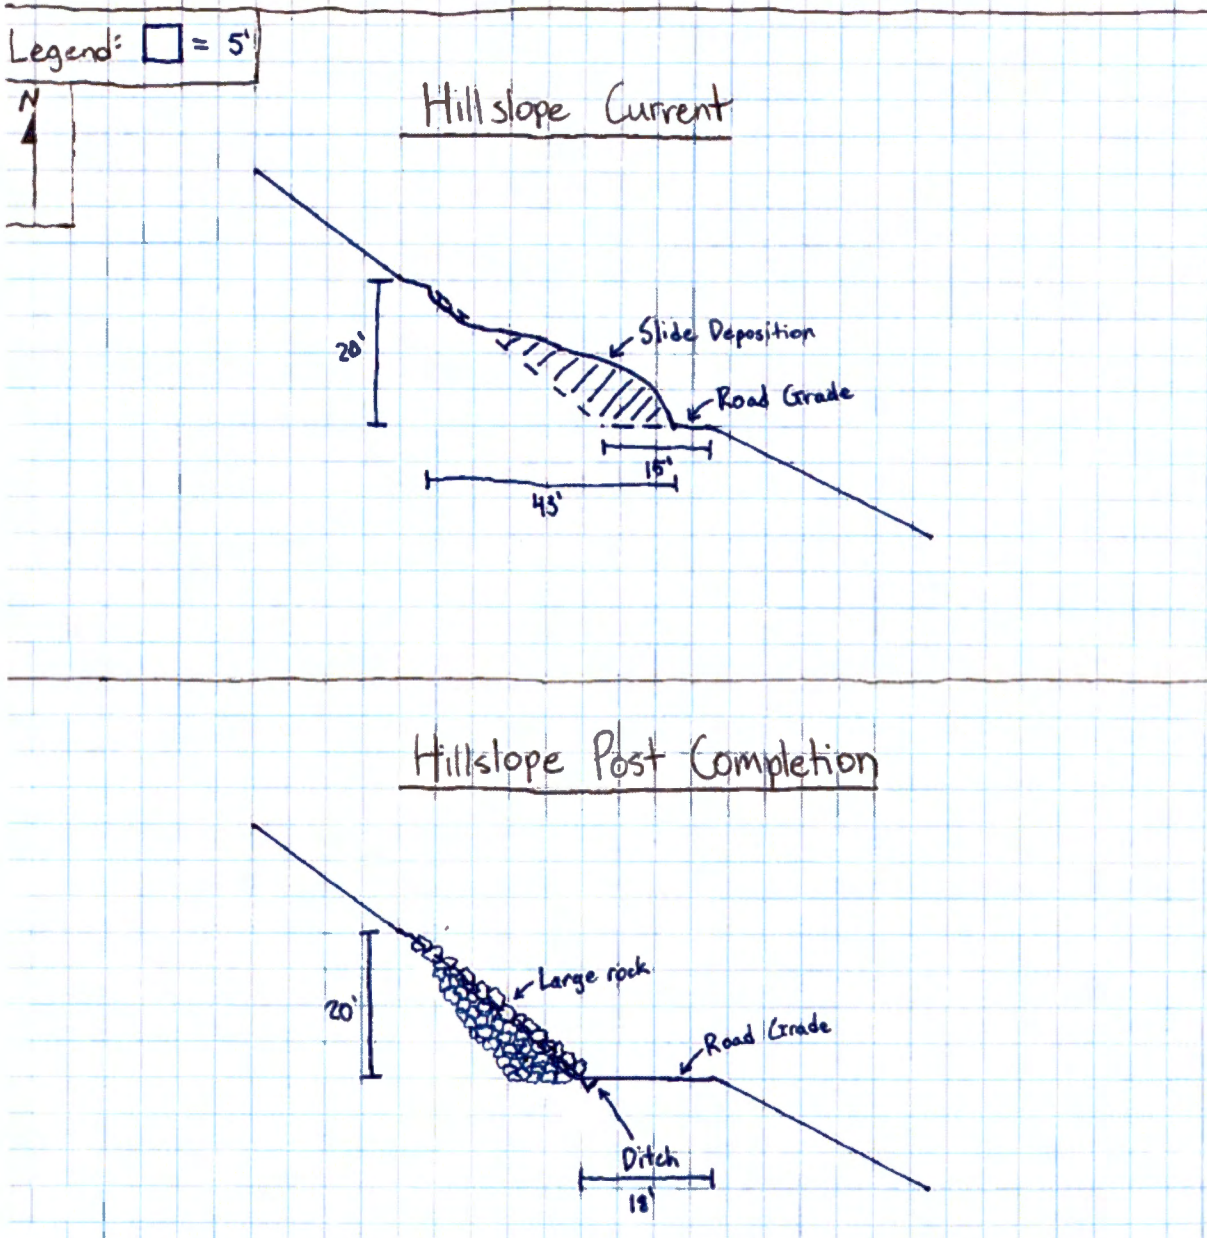 Legend: □ = 5'
N
Hillslope Current
20'
Slide Deposition
Road Grade
15'
43'
Hillslope Post Completion
Large rock
20'
Road Grade
Ditch
18'